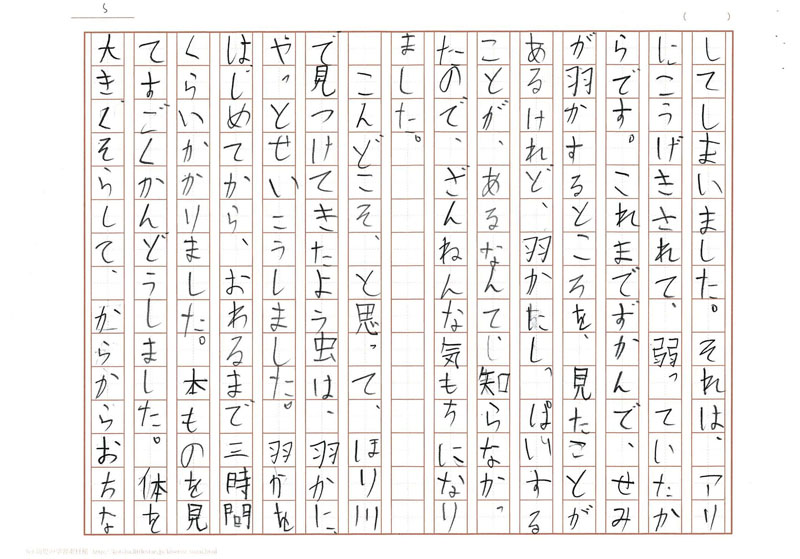 5
（　　）
してしまいました。それは、アリ
にこうげきされて、弱っていたか
らです。これまでずかんで、せみ
が羽かするところを、見たことが
あるけれど、羽かたしっぱいする
ことが、あるなんて知らなかっ
たので、ざんねんな気もちになり
ました。
こんどこそ、と思って、ほり川
で見つけてきたよう虫は、羽かに、
やっとせいこうしました。羽かを
はじめてから、おわるまで三時間
くらいかかりました。本ものを見
てすごくかんどうしました。体を
大きくそらして、からからおちな